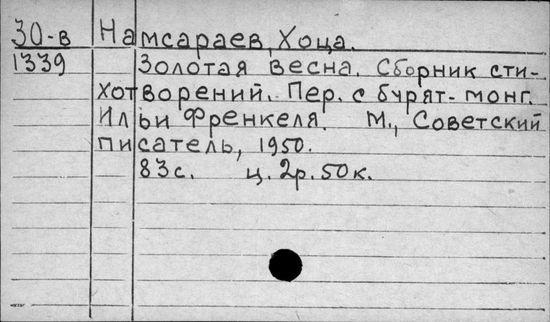 30-в Намсараев, Хоца.
1339 Золотая весна. Сборник сти-
хотворений. Пер. с бурят-монг.
Ильи Френкеля. М., Советский
писатель, 1950.
83с. ц. 2р. 50к.